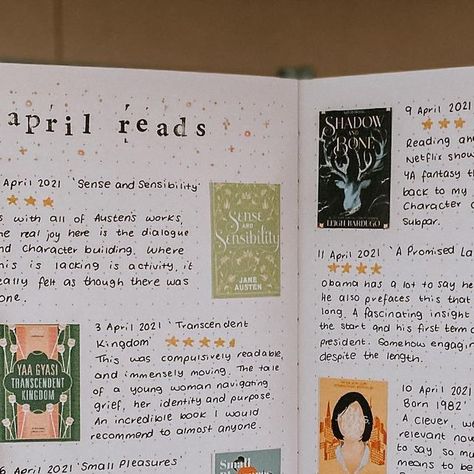 april reads
April 2021 'Sense and Sensibility'
s with all of Austen's works,
he real joy here is the dialogue
nd character building. Where
his is lacking is activity, it
eally felt as though there was
one.
Sense
and
Sensibility
JANE
AUSTEN
YAA GYASI
TRANSCENDENT
KINGDOM
3 April 2021 'Transcendent
Kingdom'
This was compulsively readable,
and immensely moving. The tale
of a young woman navigating
grief, her identity and purpose.
An incredible book I would
recommend to almost anyone.
April 2021 'Small Pleasures'
Small
SHADOW
AND
BONE
LEIGH BARDUGO
9 April 2021
Reading an
Netflix show
YA fantasy t
back to my
Character
Subpar.
11 April 2021 'A Promised La
Obama has a lot to say he
He also prefaces this that
long. A fascinating insight
the start and his first term
president. Somehow engagin
despite the length.
10 April 2021
Born 1982'
A clever, we
relevant no
to say so m
means to be